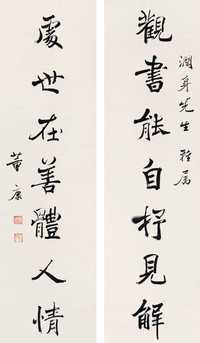 觀書能自杼見解
潤身先生雅属
處世在善體人情
董康